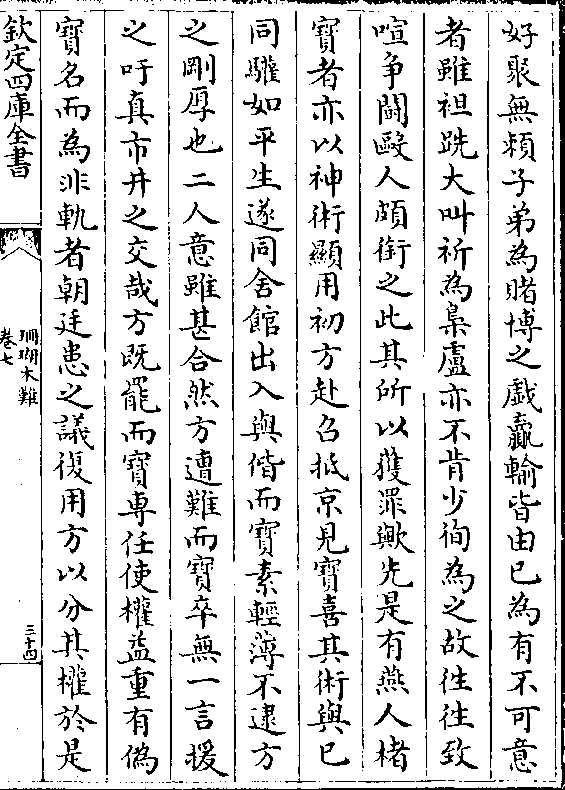 好聚無頼子弟為賭博之戲贏輸皆由已為有不可意
者雖袒跣大叫祈為梟盧亦不肯少徇為之故徃徃致
喧争鬭毆人頗銜之此其所以獲罪歟先是有燕人楮
寶者亦以神術顯用初方赴召抵京見寶喜其術與已
同驩如平生遂同舍館出入與偕而寶素輕薄不逮方
之剛厚也二人意雖甚合然方遭難而寶卒無一言援
之吁真市井之交哉方既罷而寶專任使權益重有偽
寶名而為非軌者朝廷患之議復用方以分其權於是
欽定四庫全書
珊瑚木難
卷七
三十四